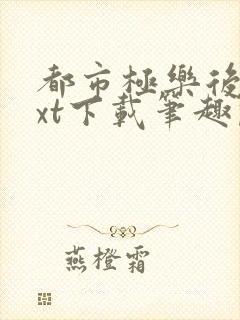 都市極樂後
xt下載筆趣
燕橙霜